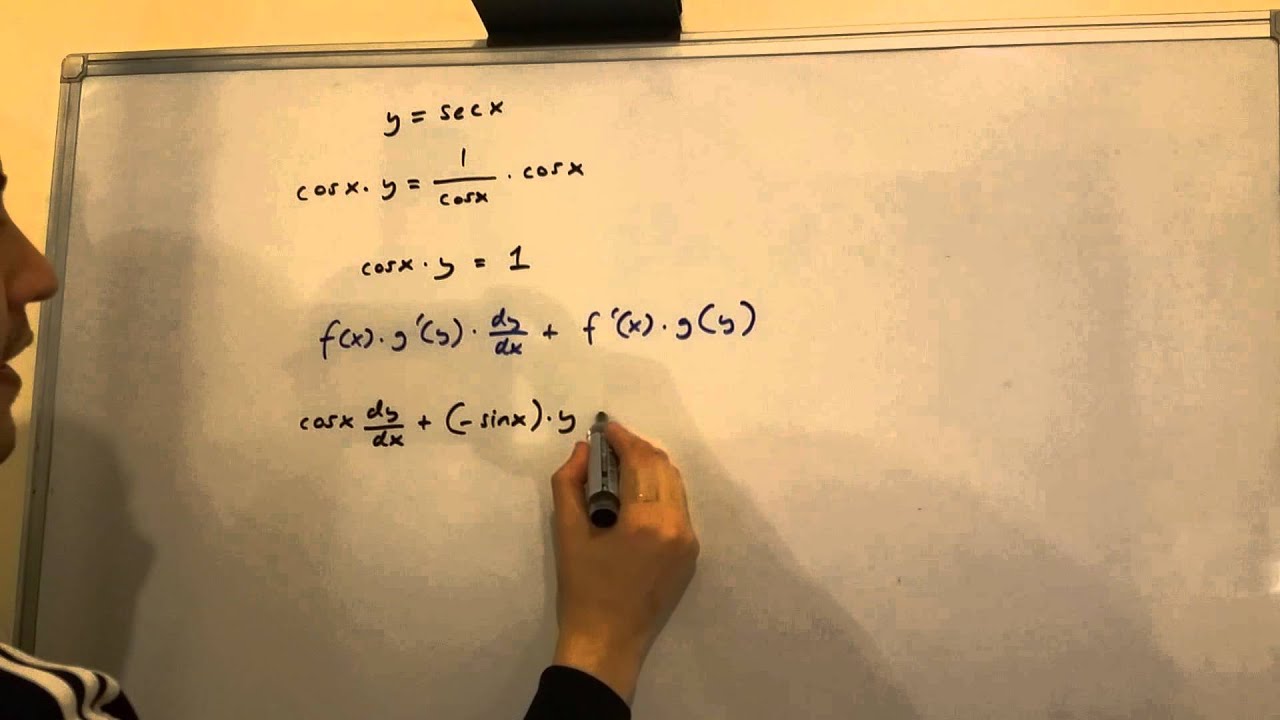 y = secx
cosx · y = 1/cosx · cosx
cosx · y = 1
f(x) · g'(y) · dy/dx + f'(x) · g(y)
cosx dy/dx + (- sinx) · y